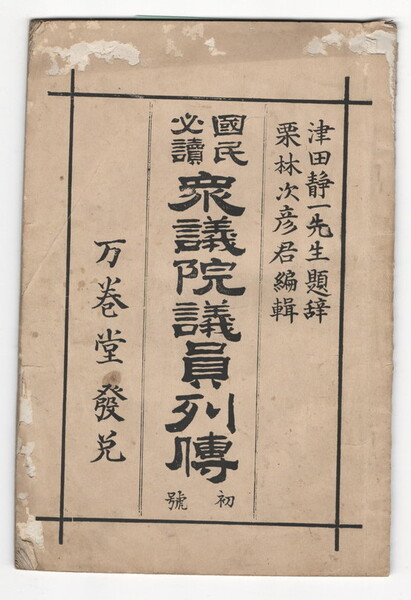 津田靜一先生題辞
栗林次彦君編輯
國民
必讀
衆議院議員列傳
初號
万巻堂發兌